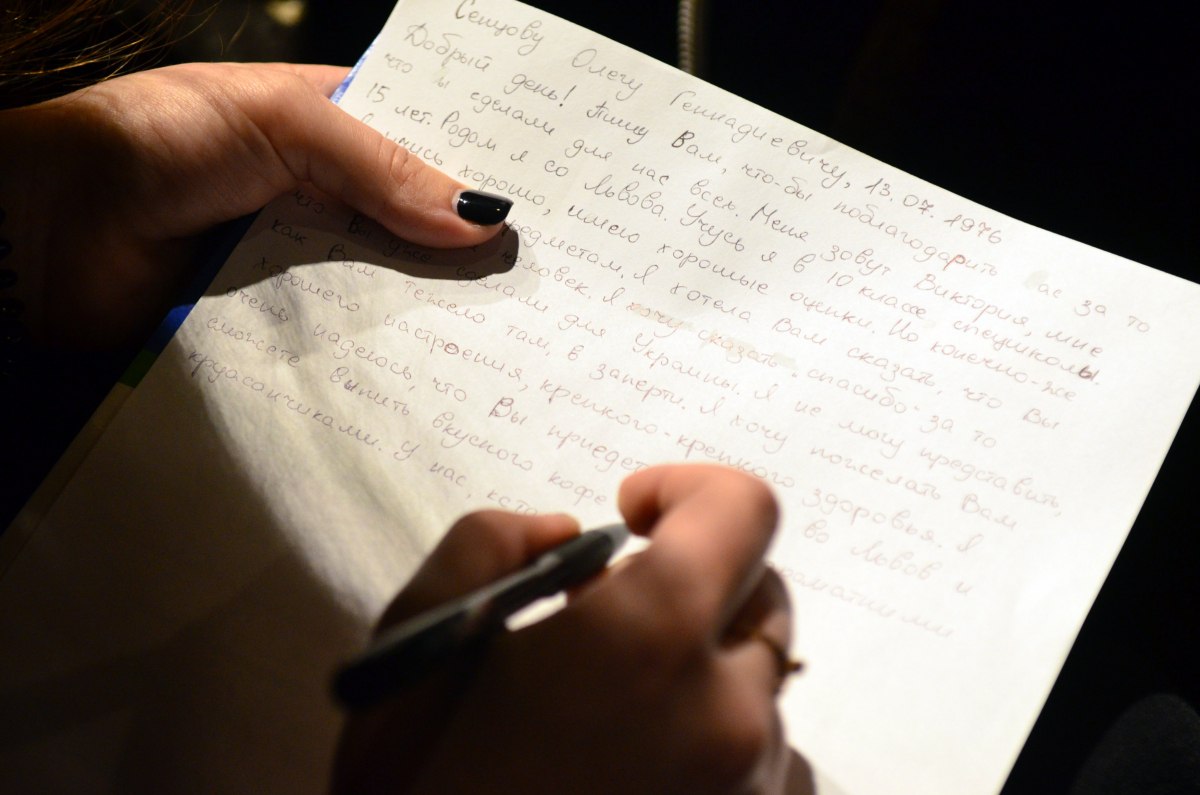 Сенцову Олегу Геннадиевичу, 13.07.1976
Добрый день! Пишу Вам, что-бы поблагодарить ас за то
что ы сделали для нас всех. Меня зовут Виктория, мне
15 лет. Родом я со Львова. Учусь я в 10 классе спецшколы.
хорошо, имею хорошые оценки. Но конечно-же
предметам. Я хотела Вам сказать, что Вы
человек. Я хочу сказать спасибо за то
что Вы уже сделали для Украины. Я не могу представить,
как Вам тежело там, в заперти. Я хочу пожелать Вам
хорошего настроения, крепкого-крепкого здоровья. Я
очень надеюсь, что Вы приедет во Львов и
сможете выпить вкусного кофе
круасанчиками. У нас, кста